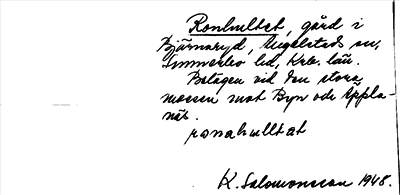 Ronhultet, gård i
Bjärnaryd, Augelstads sn,
Timmerbo hd, Krb. län.
Belägen vid den stora
mossen mot Byn och Äppla-
näs.
rønahulltat
K. Salomonsson 1948.